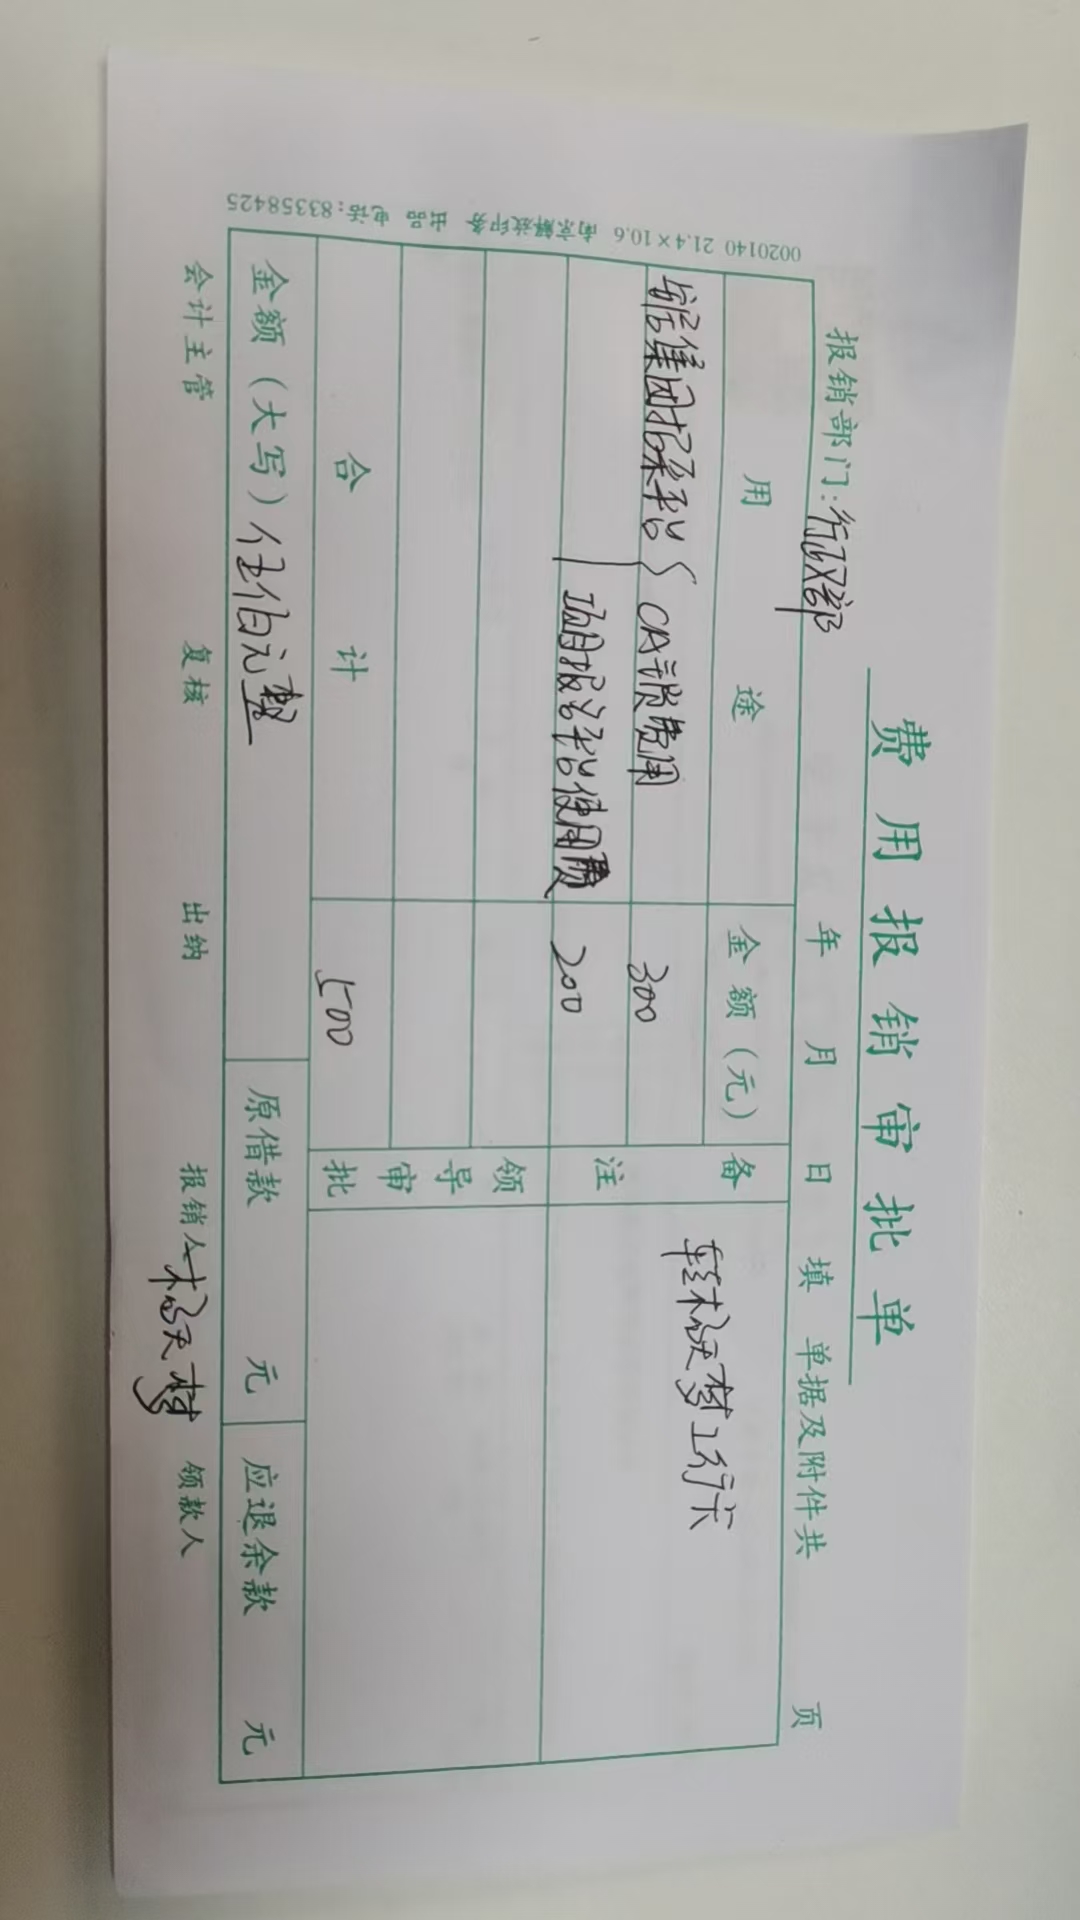 费用报销审批单
报销部门:行政部 年 月 日填 单据及附件共 页
用途 金额(元) 备注
集团招采平台 CA锁费用 300
项目报名平台使用费 200
转杨天梦工行卡
领导审批
合计 500
金额(大写)伍佰元整 原借款 元 应退余款 元
会计主管 复核 出纳 报销人 杨天梦 领款人
0020140 21.4×10.6 南京解放印务 出品 电话:83358425